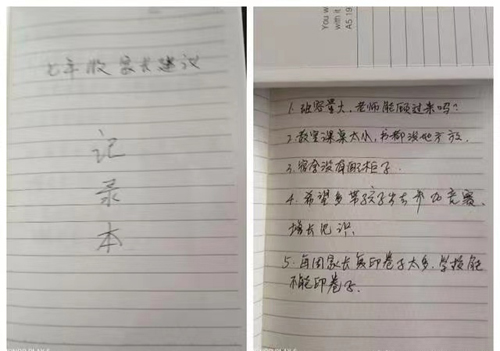 七年级家长建议
记
录
本
You w
with it
A5 19
1. 班容量大,老师能顾过来吗?
2. 教室课桌太小,书都没地方放.
3. 宿舍没有闹柜子.
4. 希望多带孩子出去参加竞赛,
增长见识.
5. 每周家长复印卷子太多.学校能
不能印卷子.